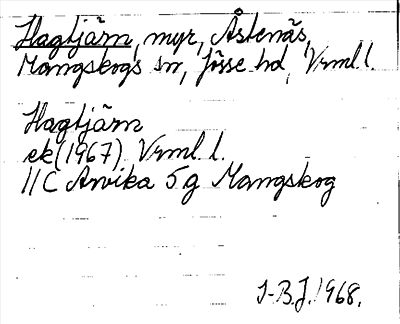 Hagtjärn, myr, Åstenäs,
Mangskogs sn, Jösse hd, Vrml. l.
Hagtjärn
ek (1967) Vrml. l.
11C Arvika 5g Mangskog
I-B.J. 1968.